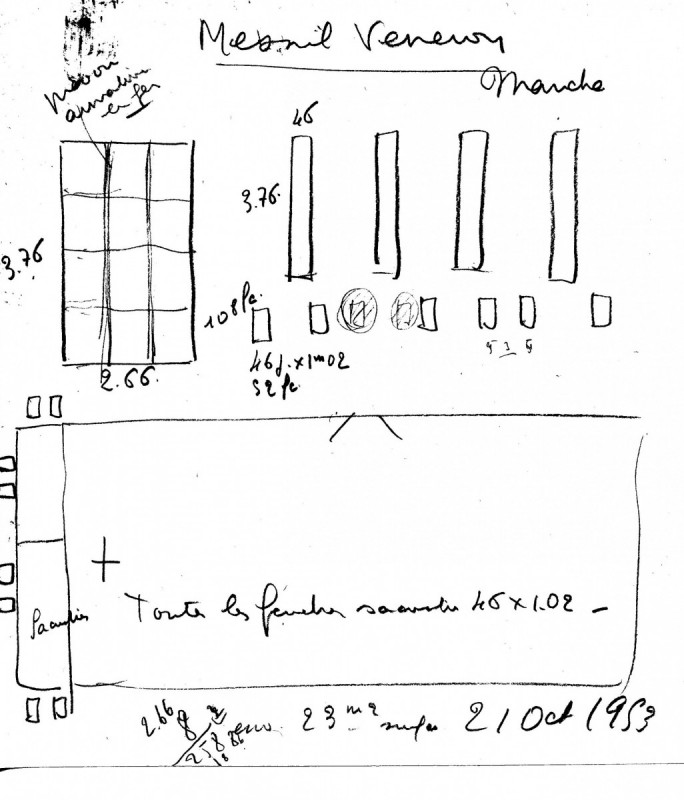 Mesnil Veneron
Manche
armature
en fer
46
3.76
3.76
108 fc.
2.66
46 f. x 1m02
52 fc.
5 3 5
Toutes les fenêtres sacristie 46 x 1.02 -
Sacristie
2.66
8
23 m2 21 Oct 1953